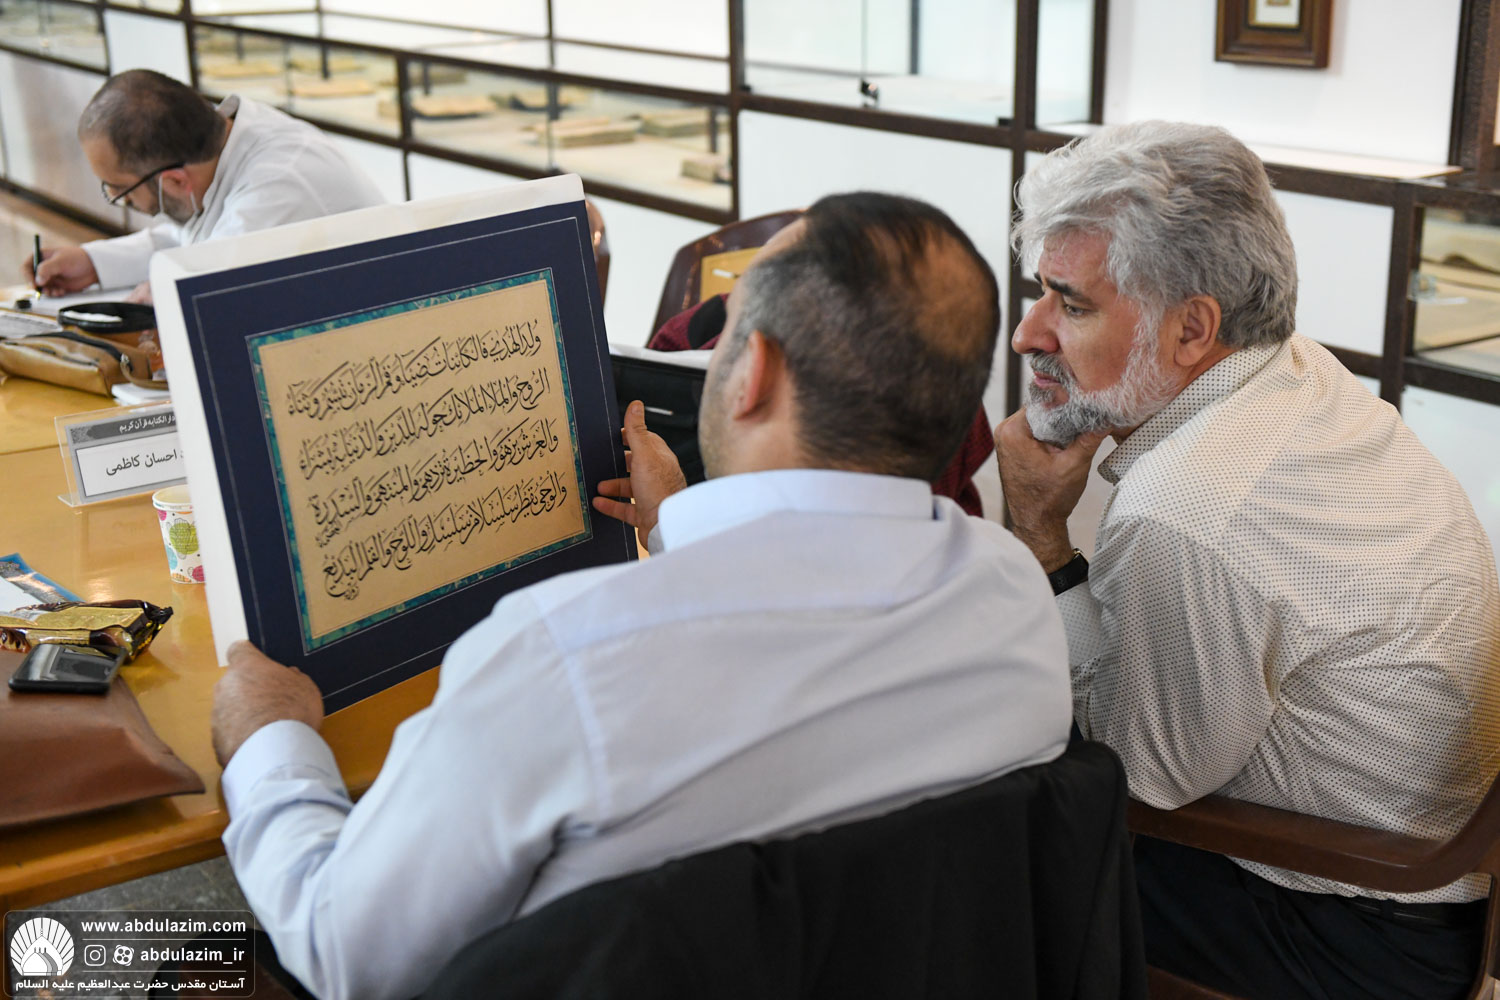 وُلِدَ الْهُدىٰ فَالْكَائِنَاتُ ضِيَاءُ وَفَمُ الزَّمَانِ تَبَسُّمٌ وَثَنَاءُ
الرُّوحُ وَالْمَلَأُ الْمَلَائِكُ حَوْلَهُ لِلدِّينِ وَالدُّنْيَا بِهِ بُشَرَاءُ
وَالْعَرْشُ يَزْهُو وَالْحَظِيرَةُ تَزْدَهِي وَالْمُنْتَهَى وَالسِّدْرَةُ
وَالْوَحْيُ يَقْطُرُ سَلْسَلًا مِنْ سَلْسَلٍ وَاللَّوْحُ وَالْقَلَمُ الْبَدِيعُ
دار الکتابه قرآن کریم
احسان کاظمی
www.abdulazim.com
abdulazim_ir
آستان مقدس حضرت عبدالعظیم علیه السلام